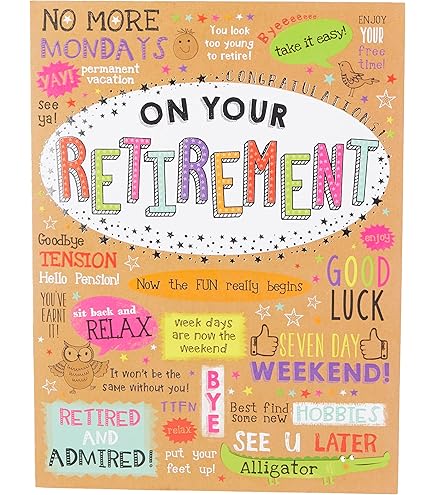 NO MORE
MONDAYS
You look
too young
to retire!
Byeeeeee
take it easy!
ENJOY
YOUR
free
time!
YAY!
permanent
vacation
see
ya!
CONGRATULATIONS
ON YOUR
RETIREMENT
enjoy
Goodbye
TENSION
Hello Pension!
GOOD
LUCK
Now the FUN really begins
YOU'VE
EARNT
IT!
sit back and
RELAX
week days
are now the
weekend
SEVEN DAY
WEEKEND!
It won't be the
same without you!
BYE
RETIRED
AND
ADMIRED!
TTFN
relax
put your
feet up!
Best find
some new
HOBBIES
SEE U LATER
Alligator